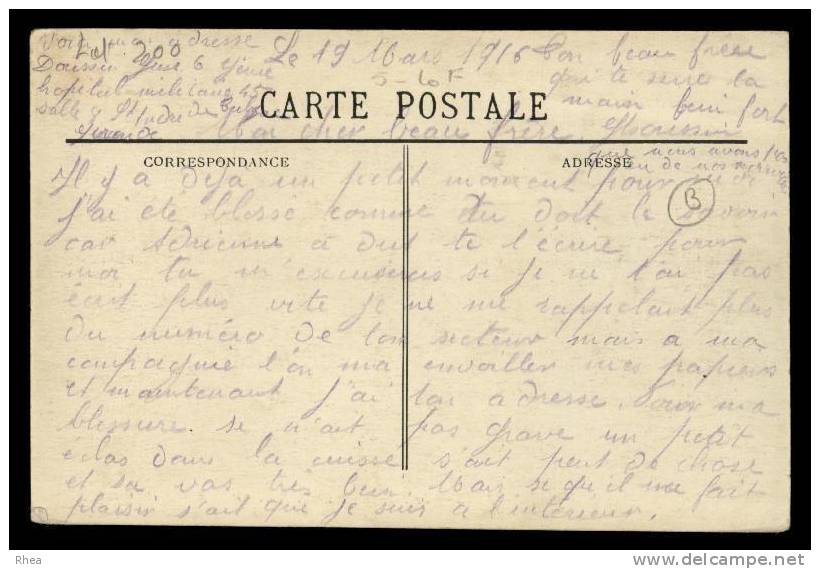 Voici mon adresse
Zd. 200
Doussin 6
hopital militaire 45
salle 8 St André de
Gironde
Le 19 Mars 1916
5-6F
Ton beau frère
qui te serre la
main bien fort
Doussin
CARTE POSTALE
Mon cher beau frère
que nous avons
de nos
CORRESPONDANCE
ADRESSE
B
Il y a deja un petit moment
j'ai été blessé comme tu doit le savoir
car Adrienne à dut te l'écrire, pour
moi tu m'excuseras si je ne t'ai pas
écrit plus vite je ne me rappelait plus
du numéro de ton secteur mais a ma
compagnie l'on ma envoiller mes papiers
et maintenant j'ai ton adresse. Pour ma
blessure se n'ait pas grave un petit
éclas dans la cuisse s'ait peut de chose
et sa vas tres bien. Mais se qu'il me fait
plaisir s'ait que je suis a l'interieur.
Rhea
www.delcampe.net